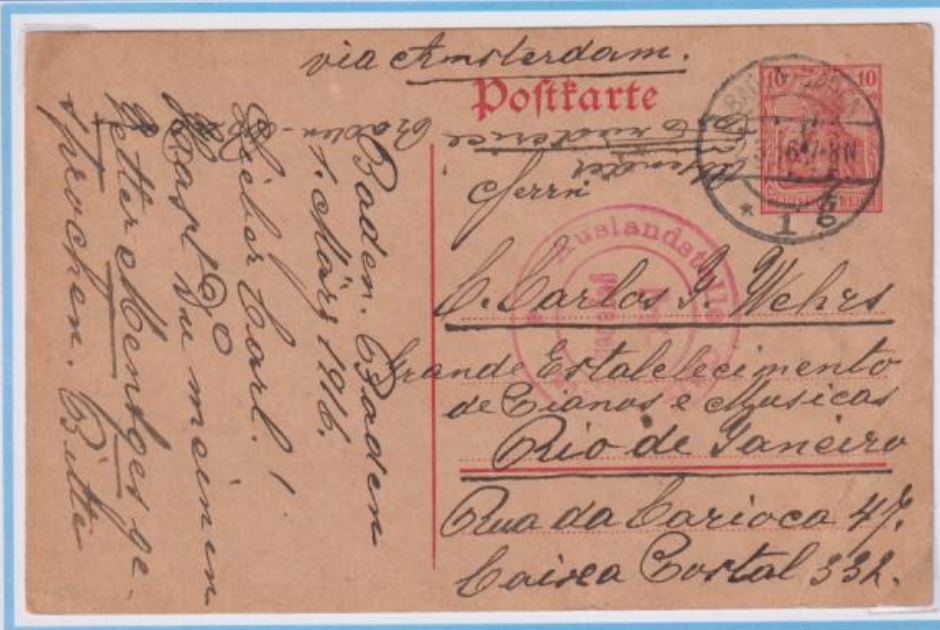 via Amsterdam.
Postkarte
10 10
BADEN-BADEN
6 7-8N
* 1
Absender
Baden-
Herrn
Auslandstelle
C. Carlos J. Wehrs
Grande Estabelecimento
de Pianos e Musicas
Rio de Janeiro
Rua da Carioca 47.
Caixa Postal 332.
Baden-Baden
1. März 1916.
Lieber Carl!
Hast Du meinen
Vetter Mentges ge-
sprochen. Bitte